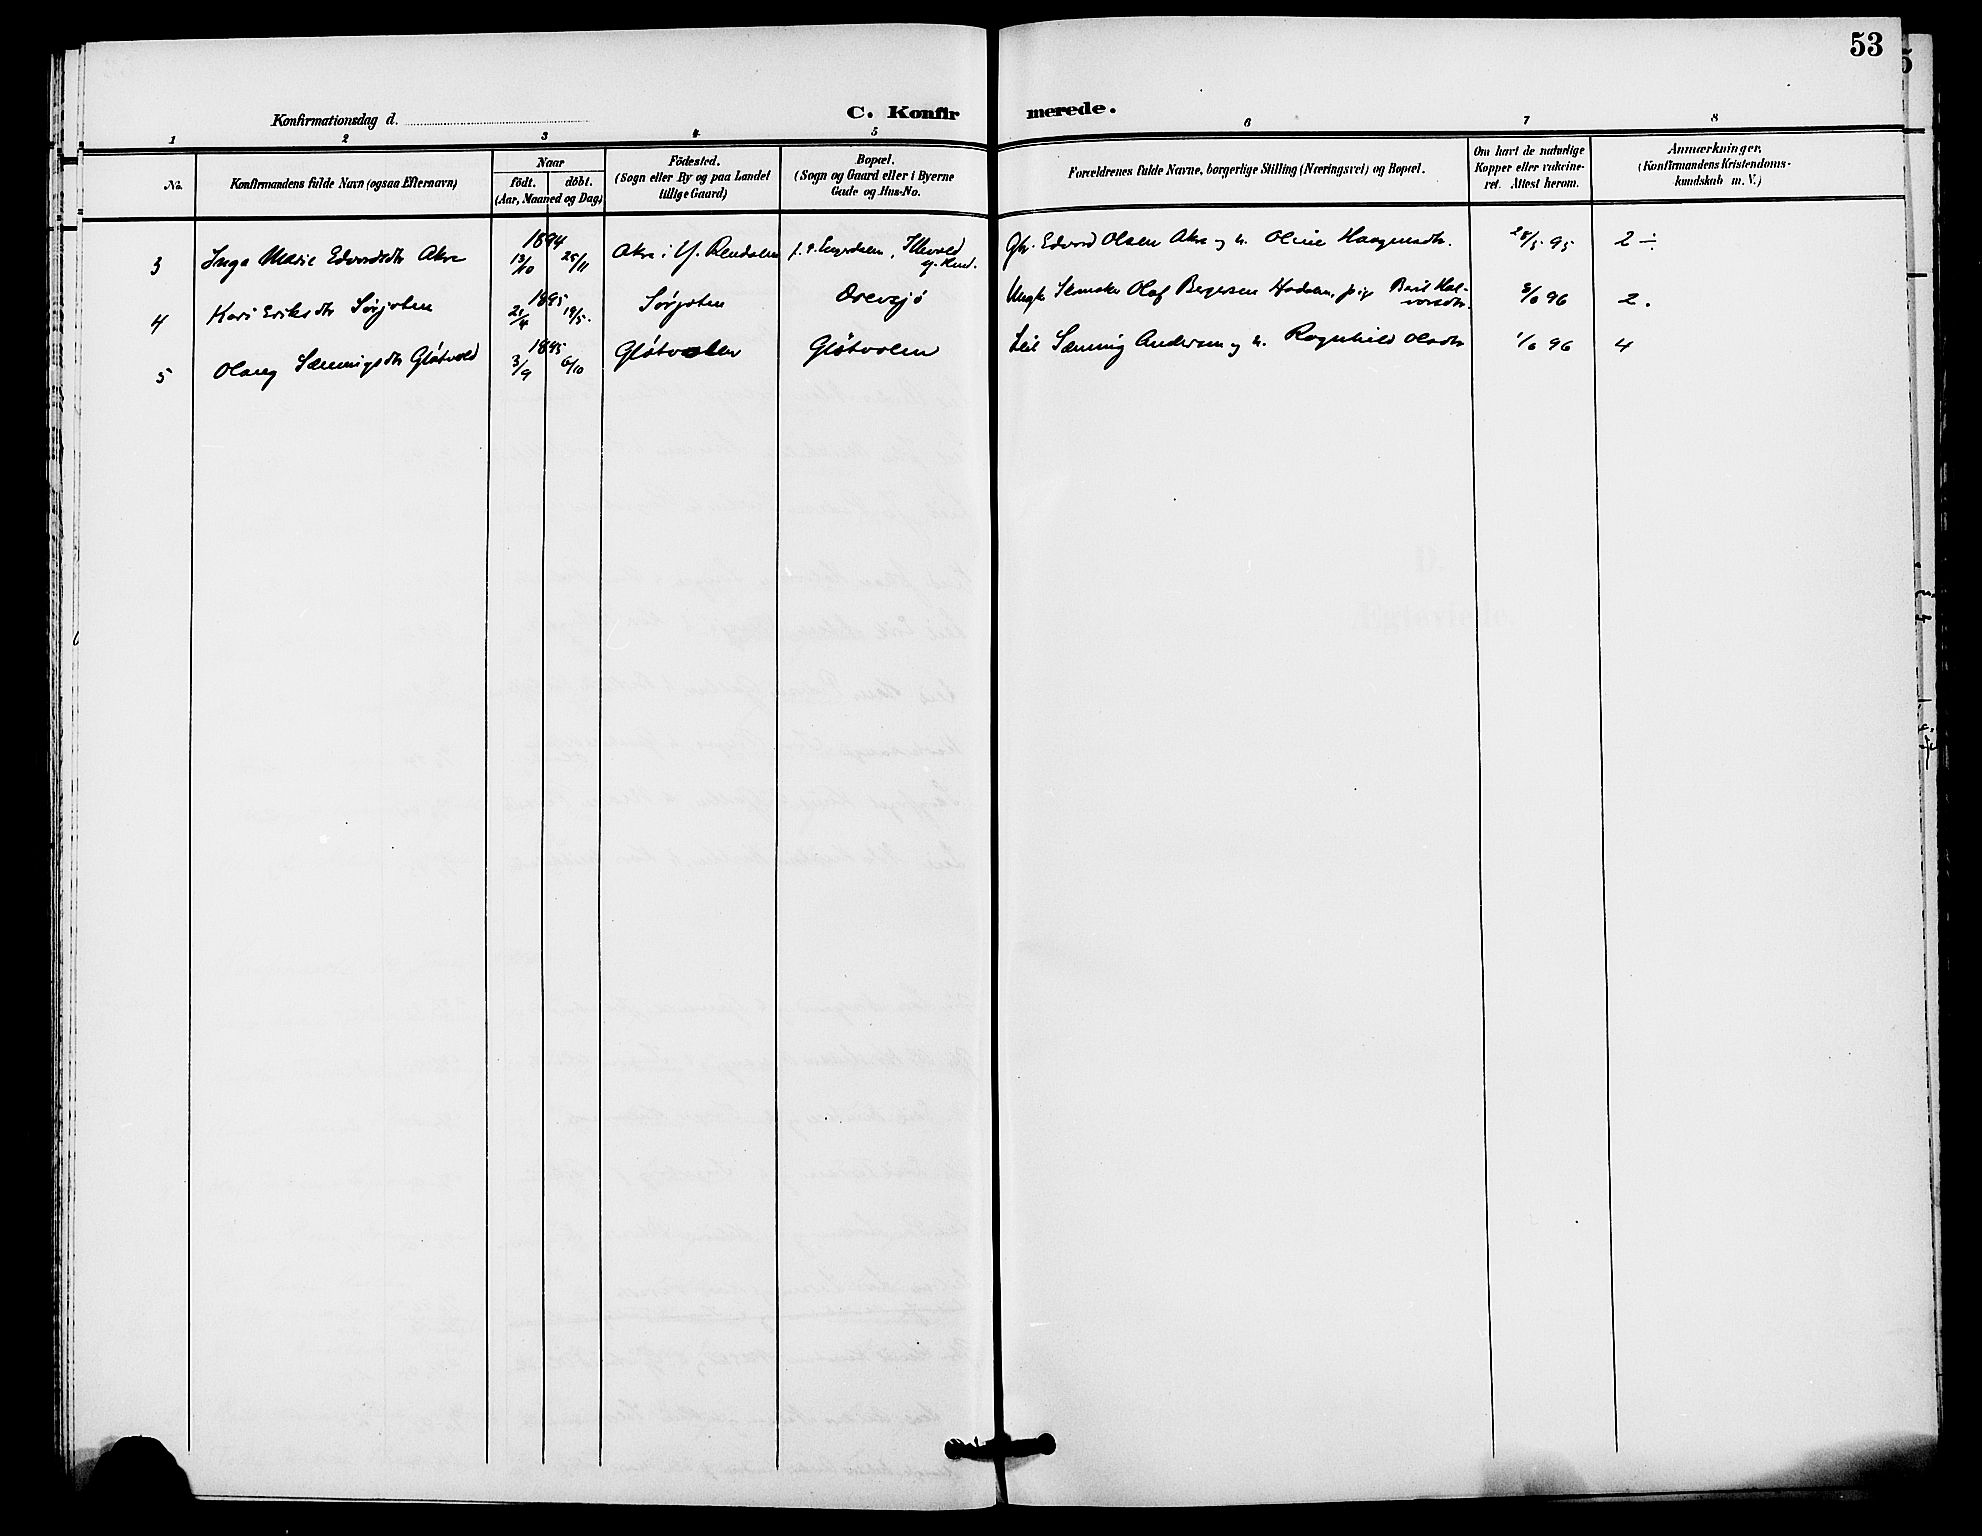 53
Konfirmationsdag d.
C. Konfirmerede.
1 2 3 4 5 6 7 8
No.
Konfirmandens fulde Navn (ogsaa Efternavn)
Naar
födt. döbt.
(Aar, Maaned og Dag)
Födested.
(Sogn eller By og paa Landet
tillige Gaard)
Bopæl.
(Sogn og Gaard eller i Byerne
Gade og Hus-No.
Forældrenes fulde Navne, borgerlige Stilling (Næringsvei) og Bopæl.
Om havt de naturlige
Kopper eller vakcine-
ret. Attest herom.
Anmærkninger,
(Konfirmandens Kristendoms-
kundskab m. V.)
3 Inga Marie Edvardsdtr Akre 1894 13/10 25/11 Akre i Y. Rendalen Gbr. Edvard Olsen Akre og h. Oline Haagensdtr. 28/5 95 2 ÷
4 Kari Eriksdtr Sørjoten 1895 21/4 19/5 Sørjoten Drevsjø Ungk Olaf Begersen pige Berit Hal-
vorsdtr. 96 2.
5 Olaug Sæmingsdtr Gløtvold 1895 3/9 6/10 Gløtvolen Gløtvolen Leil Sæming Andersen og h. Ragnhild Olsdtr 1/6 96 4